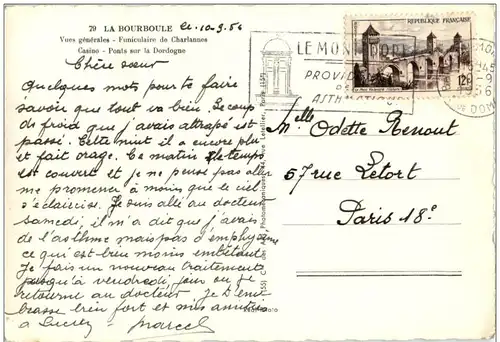 79 LA BOURBOULE
Vues générales - Funiculaire de Charlannes
Casino - Ponts sur la Dordogne
Le 10-9.56
Chère sœur
Quelques mots pour te faire
savoir que tout va bien. Le coup
de froid que j'avais attrapé est
passé. Cette nuit il a encore plu
et fait orage. Ce matin le temps
est couvert et je ne pense pas aller
me promener à moins que le ciel
s'éclaircisse. Je suis allé au docteur
samedi, il m'a dit que j'avais
de l'asthme mais pas d'emphysème
ce qui est bien moins embêtant.
Je fais un nouveau traitement
jusqu'à vendredi jour ou je
retourne au docteur. Je t'em
brasse bien fort et mes amitiés
à Lucien - Marcel
LE MONT DORE
PROVID
ASTH
REPUBLIQUE FRANÇAISE
12F
DOM
Mlle Odette Renout
57 rue Letort
Paris 18e